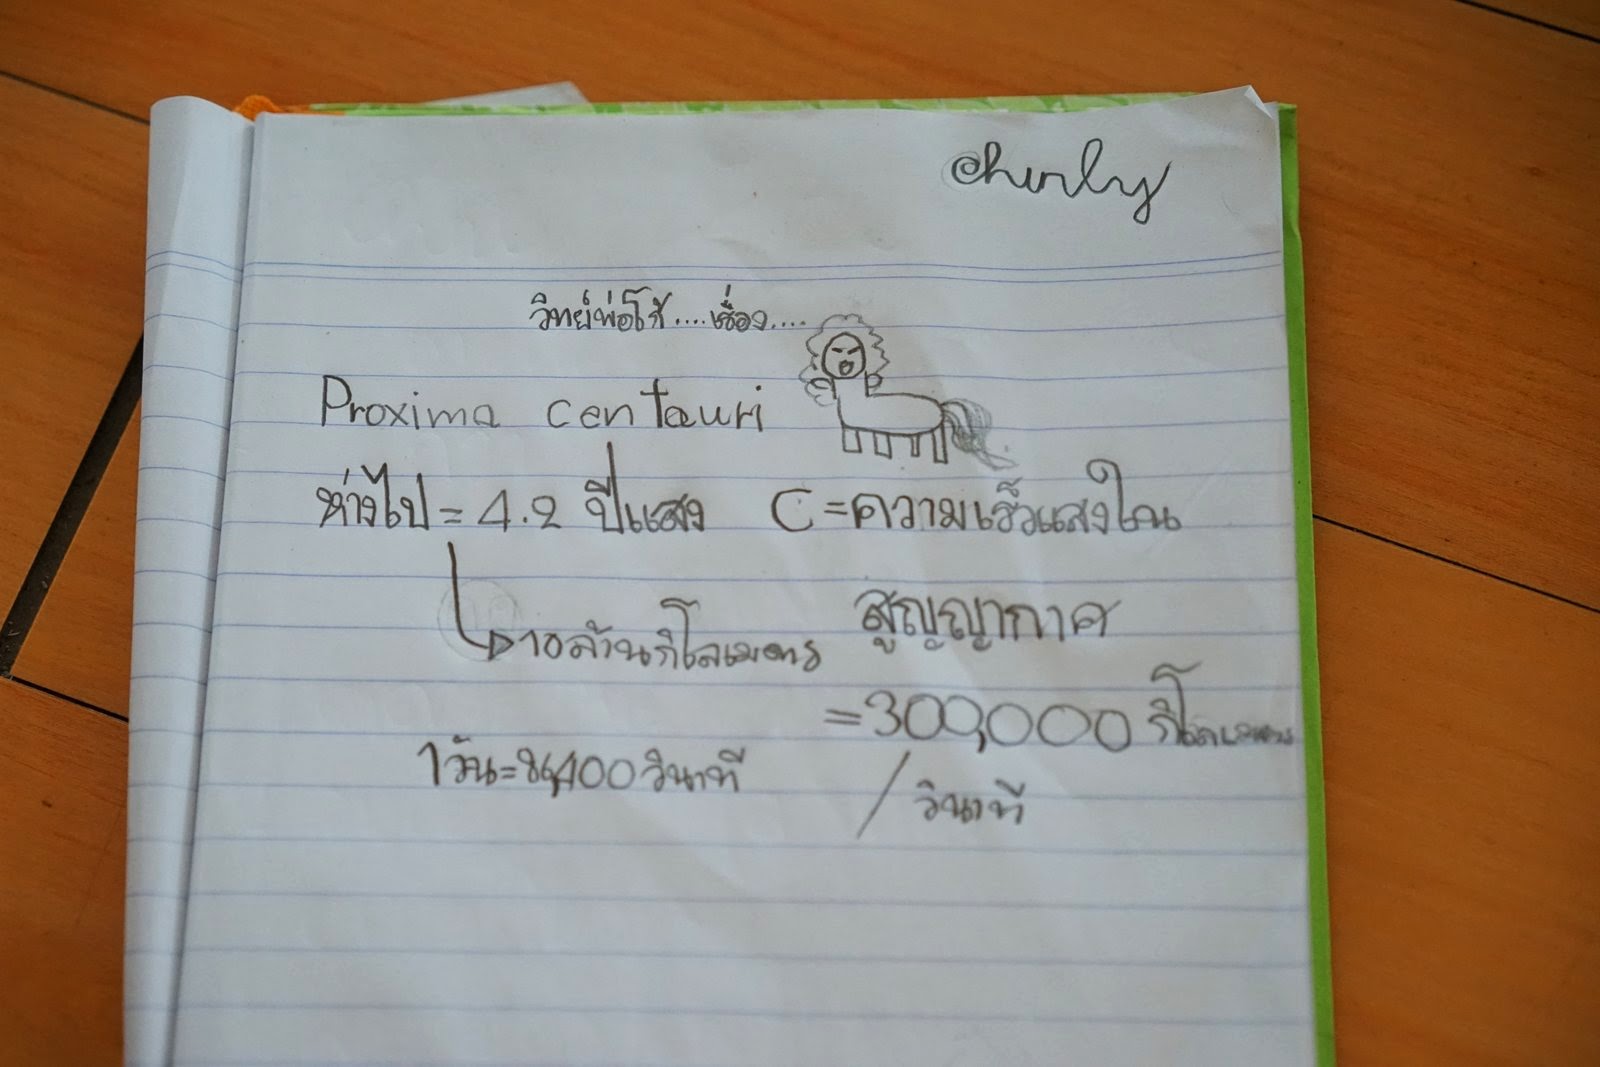 @hurly
วิทย์พ่อโก้....เรื่อง....
Proxima centauri
ห่างไป = 4.2 ปีแสง
10ล้านกิโลเมตร
1วัน=86,400วินาที
C =ความเร็วแสงใน
สูญญากาศ
=300,000 กิโลเมตร
/ วินาที